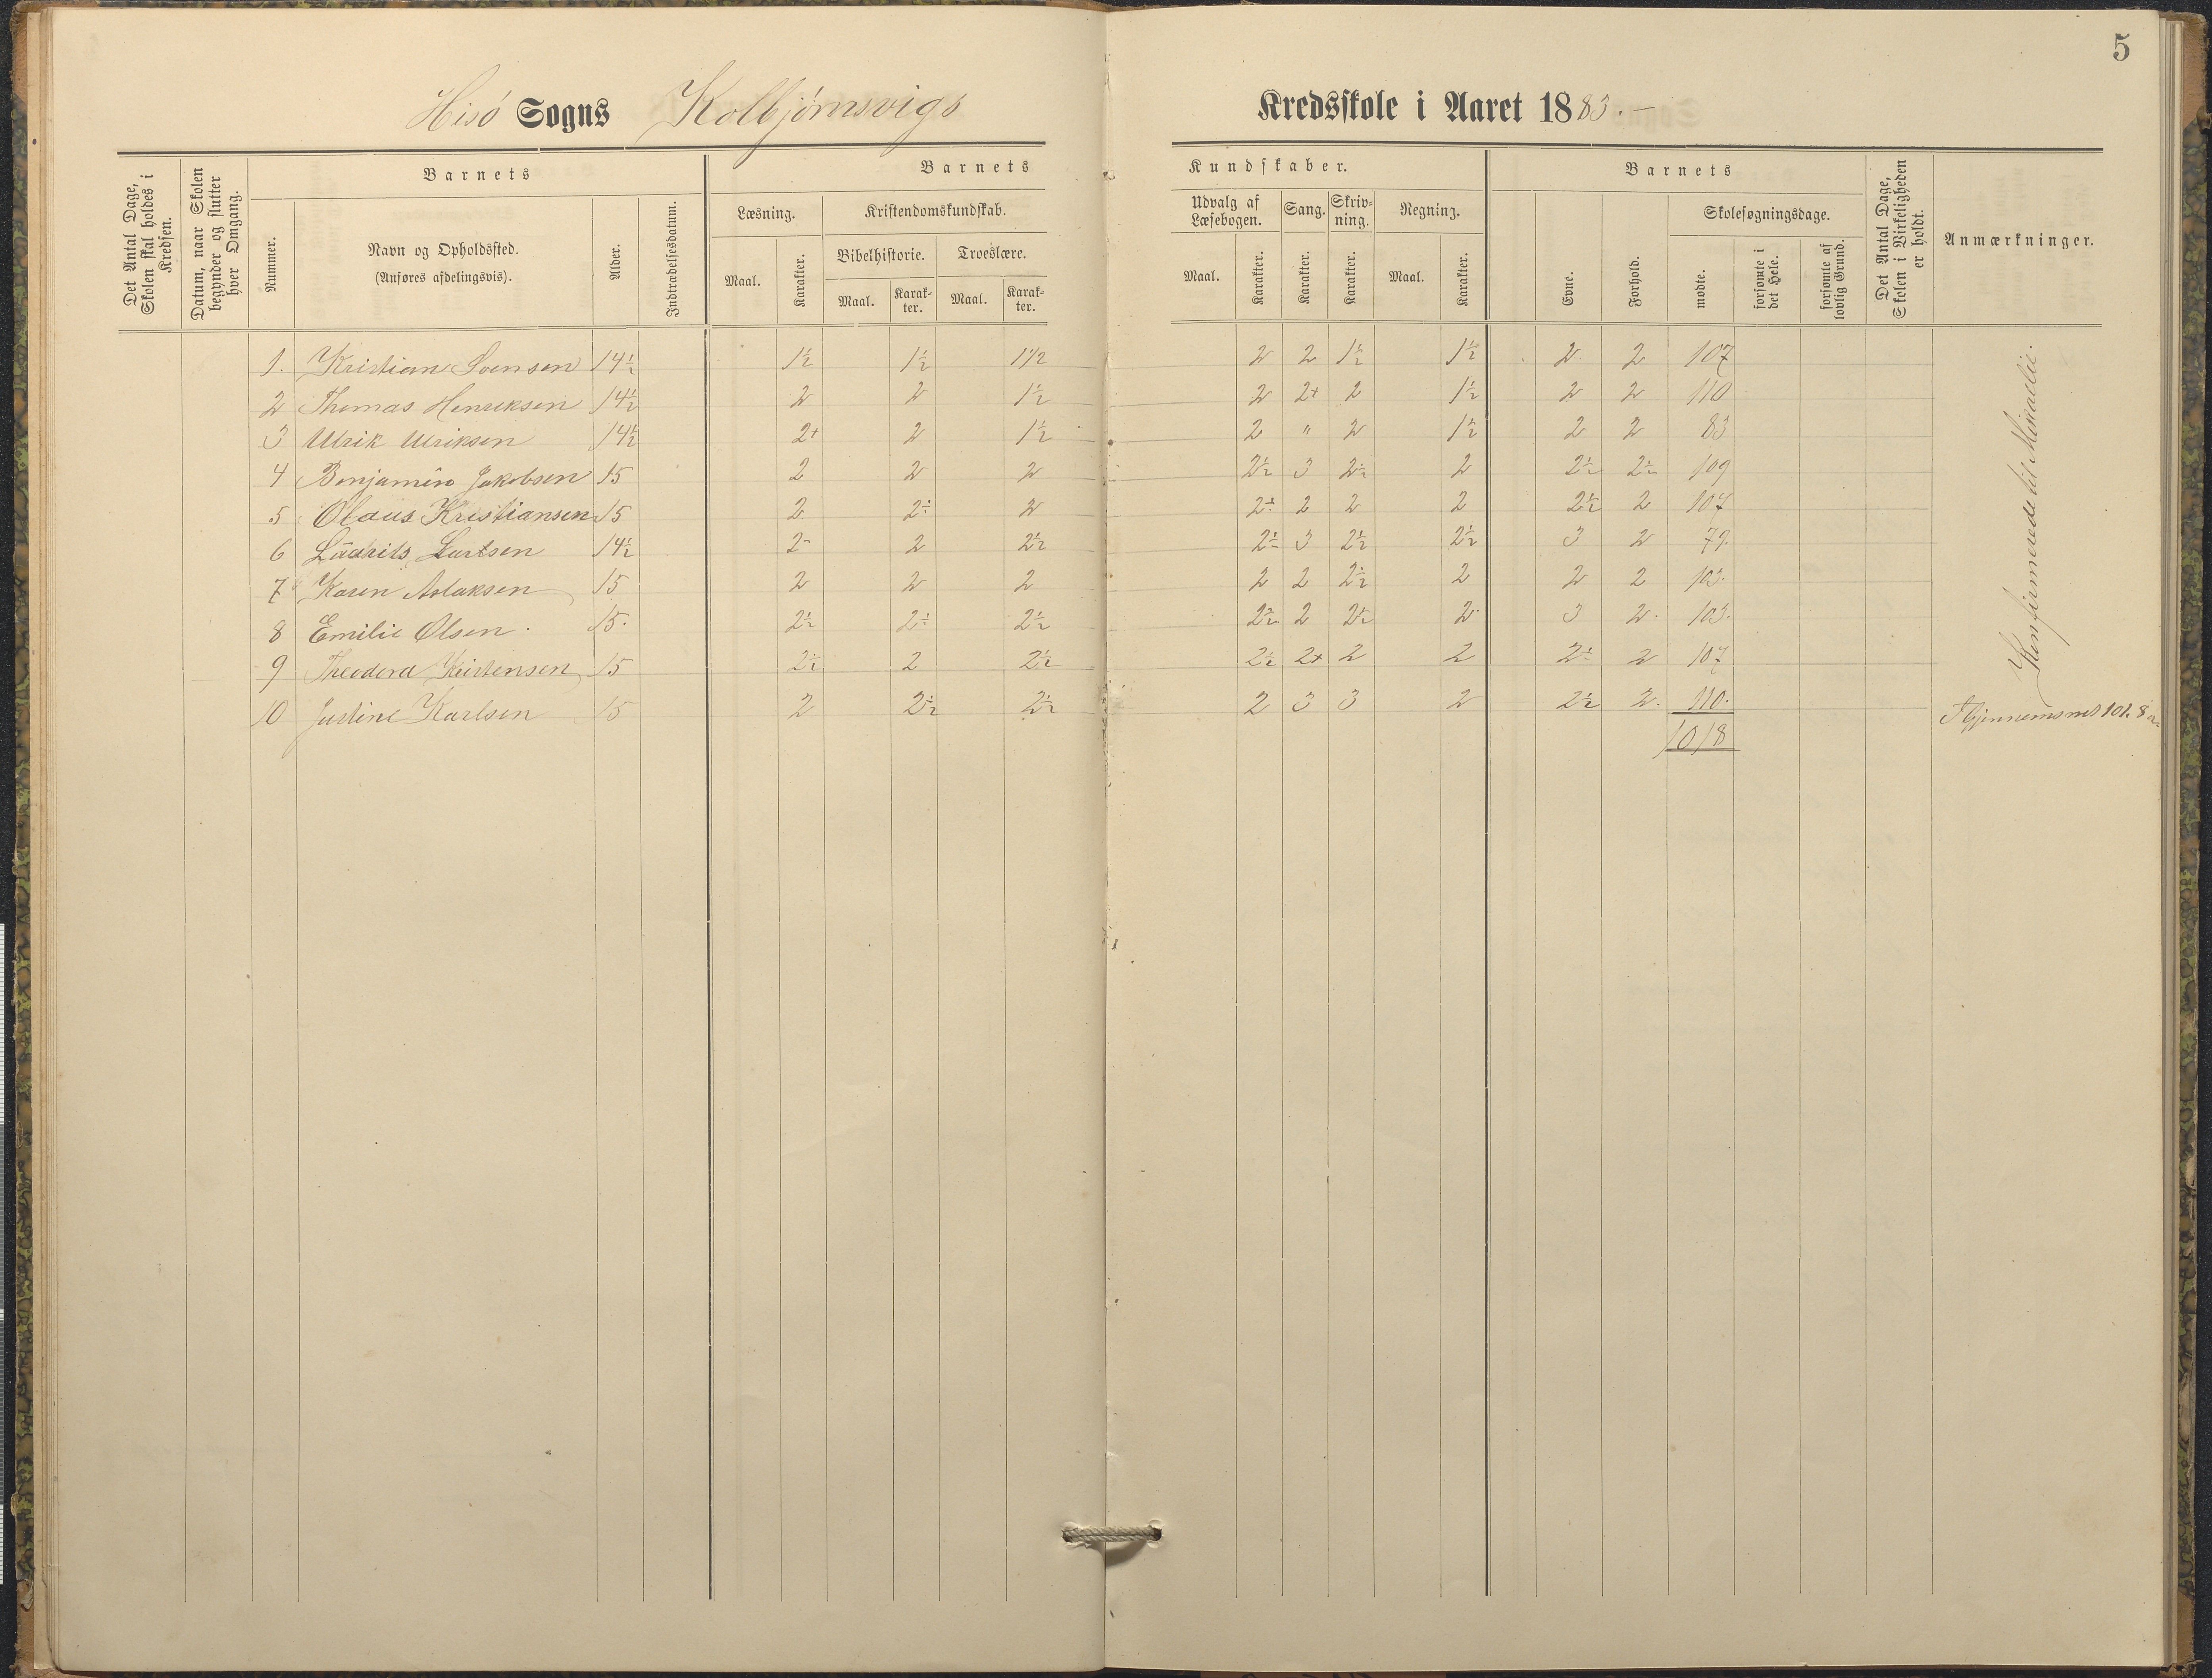 5
Hisö Sogns Kolbjörnsvigs Kredsskole i Aaret 1883.
Det Antal Dage, Skolen skal holdes i Kredsen.
Datum, naar Skolen begynder og slutter hver Omgang.
Barnets
Nummer.
Navn og Opholdssted.
(Anføres afdelingsvis).
Alder.
Indtrædelsesdatum.
Barnets Kundskaber.
Læsning.
Maal.
Karakter.
Kristendomskundskab.
Bibelhistorie.
Maal.
Karakter.
Troeslære.
Maal.
Karakter.
Udvalg af Læsebogen.
Maal.
Karakter.
Sang.
Karakter.
Skrivning.
Karakter.
Regning.
Maal.
Karakter.
Barnets
Evne.
Forhold.
Skolesøgningsdage.
mødte.
forsømte i det Hele.
forsømte af lovlig Grund.
Det Antal Dage, Skolen i Virkeligheden er holdt.
Anmærkninger.
1. Kristiane 14½ 1½ 1½ 1½ 2 2 1½ 1½ 2 2 107
2 Thomas Henriksen 14½ 2 2 1½ 2 2+ 2 1½ 2 2 110
3 Ulrik Ulriksen 14½ 2+ 2 1½ 2 " 2 1½ 2 2 83
4 Benjamin Jakobsen 15 2 2 2 2½ 3 2½ 2 2½ 2½ 109
5 Olaus Kristiansen 15 2 2½ 2 2½ 2 2 2 2½ 2 107
6 14½ 2- 2 2½ 2½ 3 2½ 2½ 3 2 79.
7 Karen Aslaksen 15 2 2 2 2 2 2½ 2 2 2 103.
8 Emilie Olsen. 15. 2½ 2½ 2½ 2½ 2 2½ 2. 3 2. 103.
9 Theodora Kristensen 15 2½ 2 2½ 2½ 2+ 2 2 2½ 2 107
10 Justine Karlsen 15 2 2½ 2½ 2 3 3 2 2½ 2. 110.
1018
Konfirmerede til Mikaelie.
Gjennemsnit 101.8